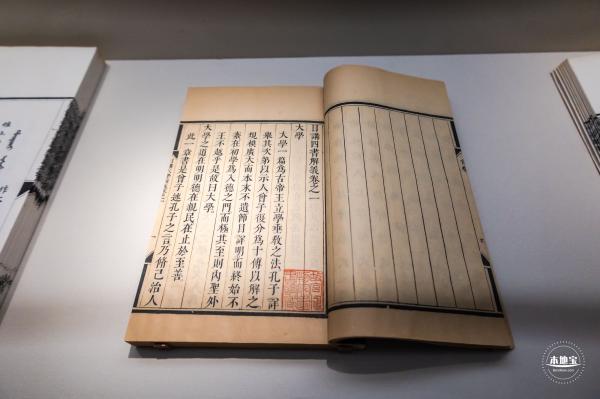 日講四書解義卷之一
大學
大學一篇爲古帝王立學垂教之法孔子詳
舉其次第以示人曾子復分爲十傳以解之
規模廣大而本末不遺節目詳明而終始不
紊在初學爲入德之門而極其至則內聖外
王不越乎是故曰大學
大學之道在明明德在親民在止於至善
此一章書是曾子述孔子之言乃脩己治人
本地宝